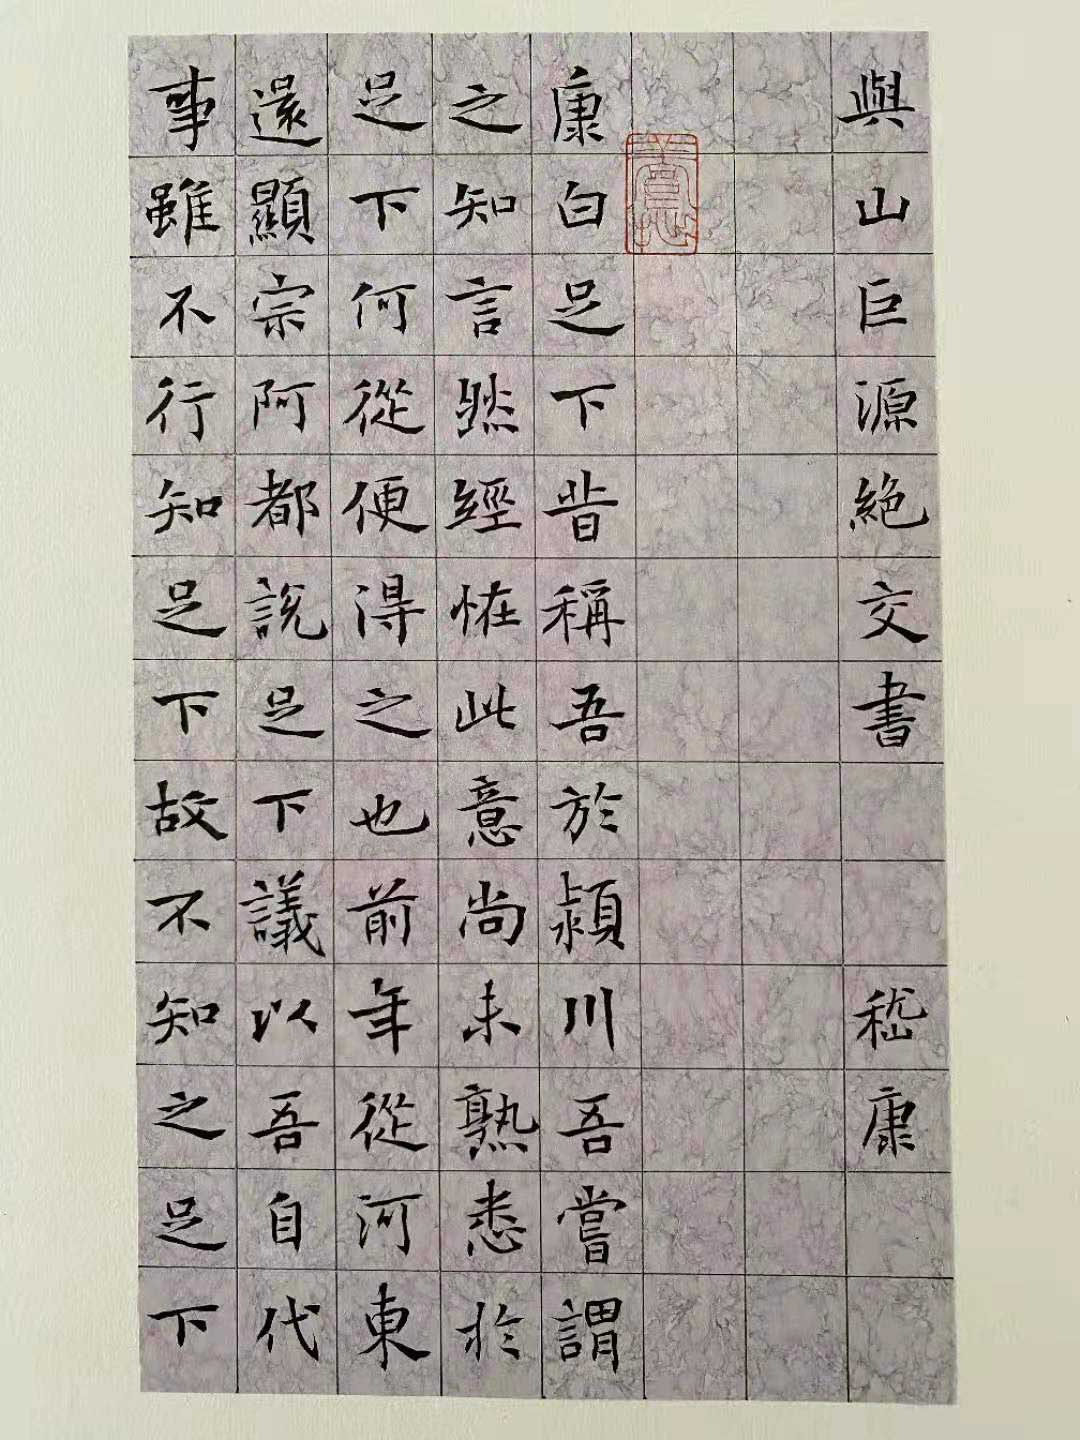 與山巨源絕交書 嵇康
康白足下昔稱吾於潁川吾嘗謂
之知言然經恠此意尚未熟悉於
足下何從便得之也前年從河東
還顯宗阿都說足下議以吾自代
事雖不行知足下故不知之足下